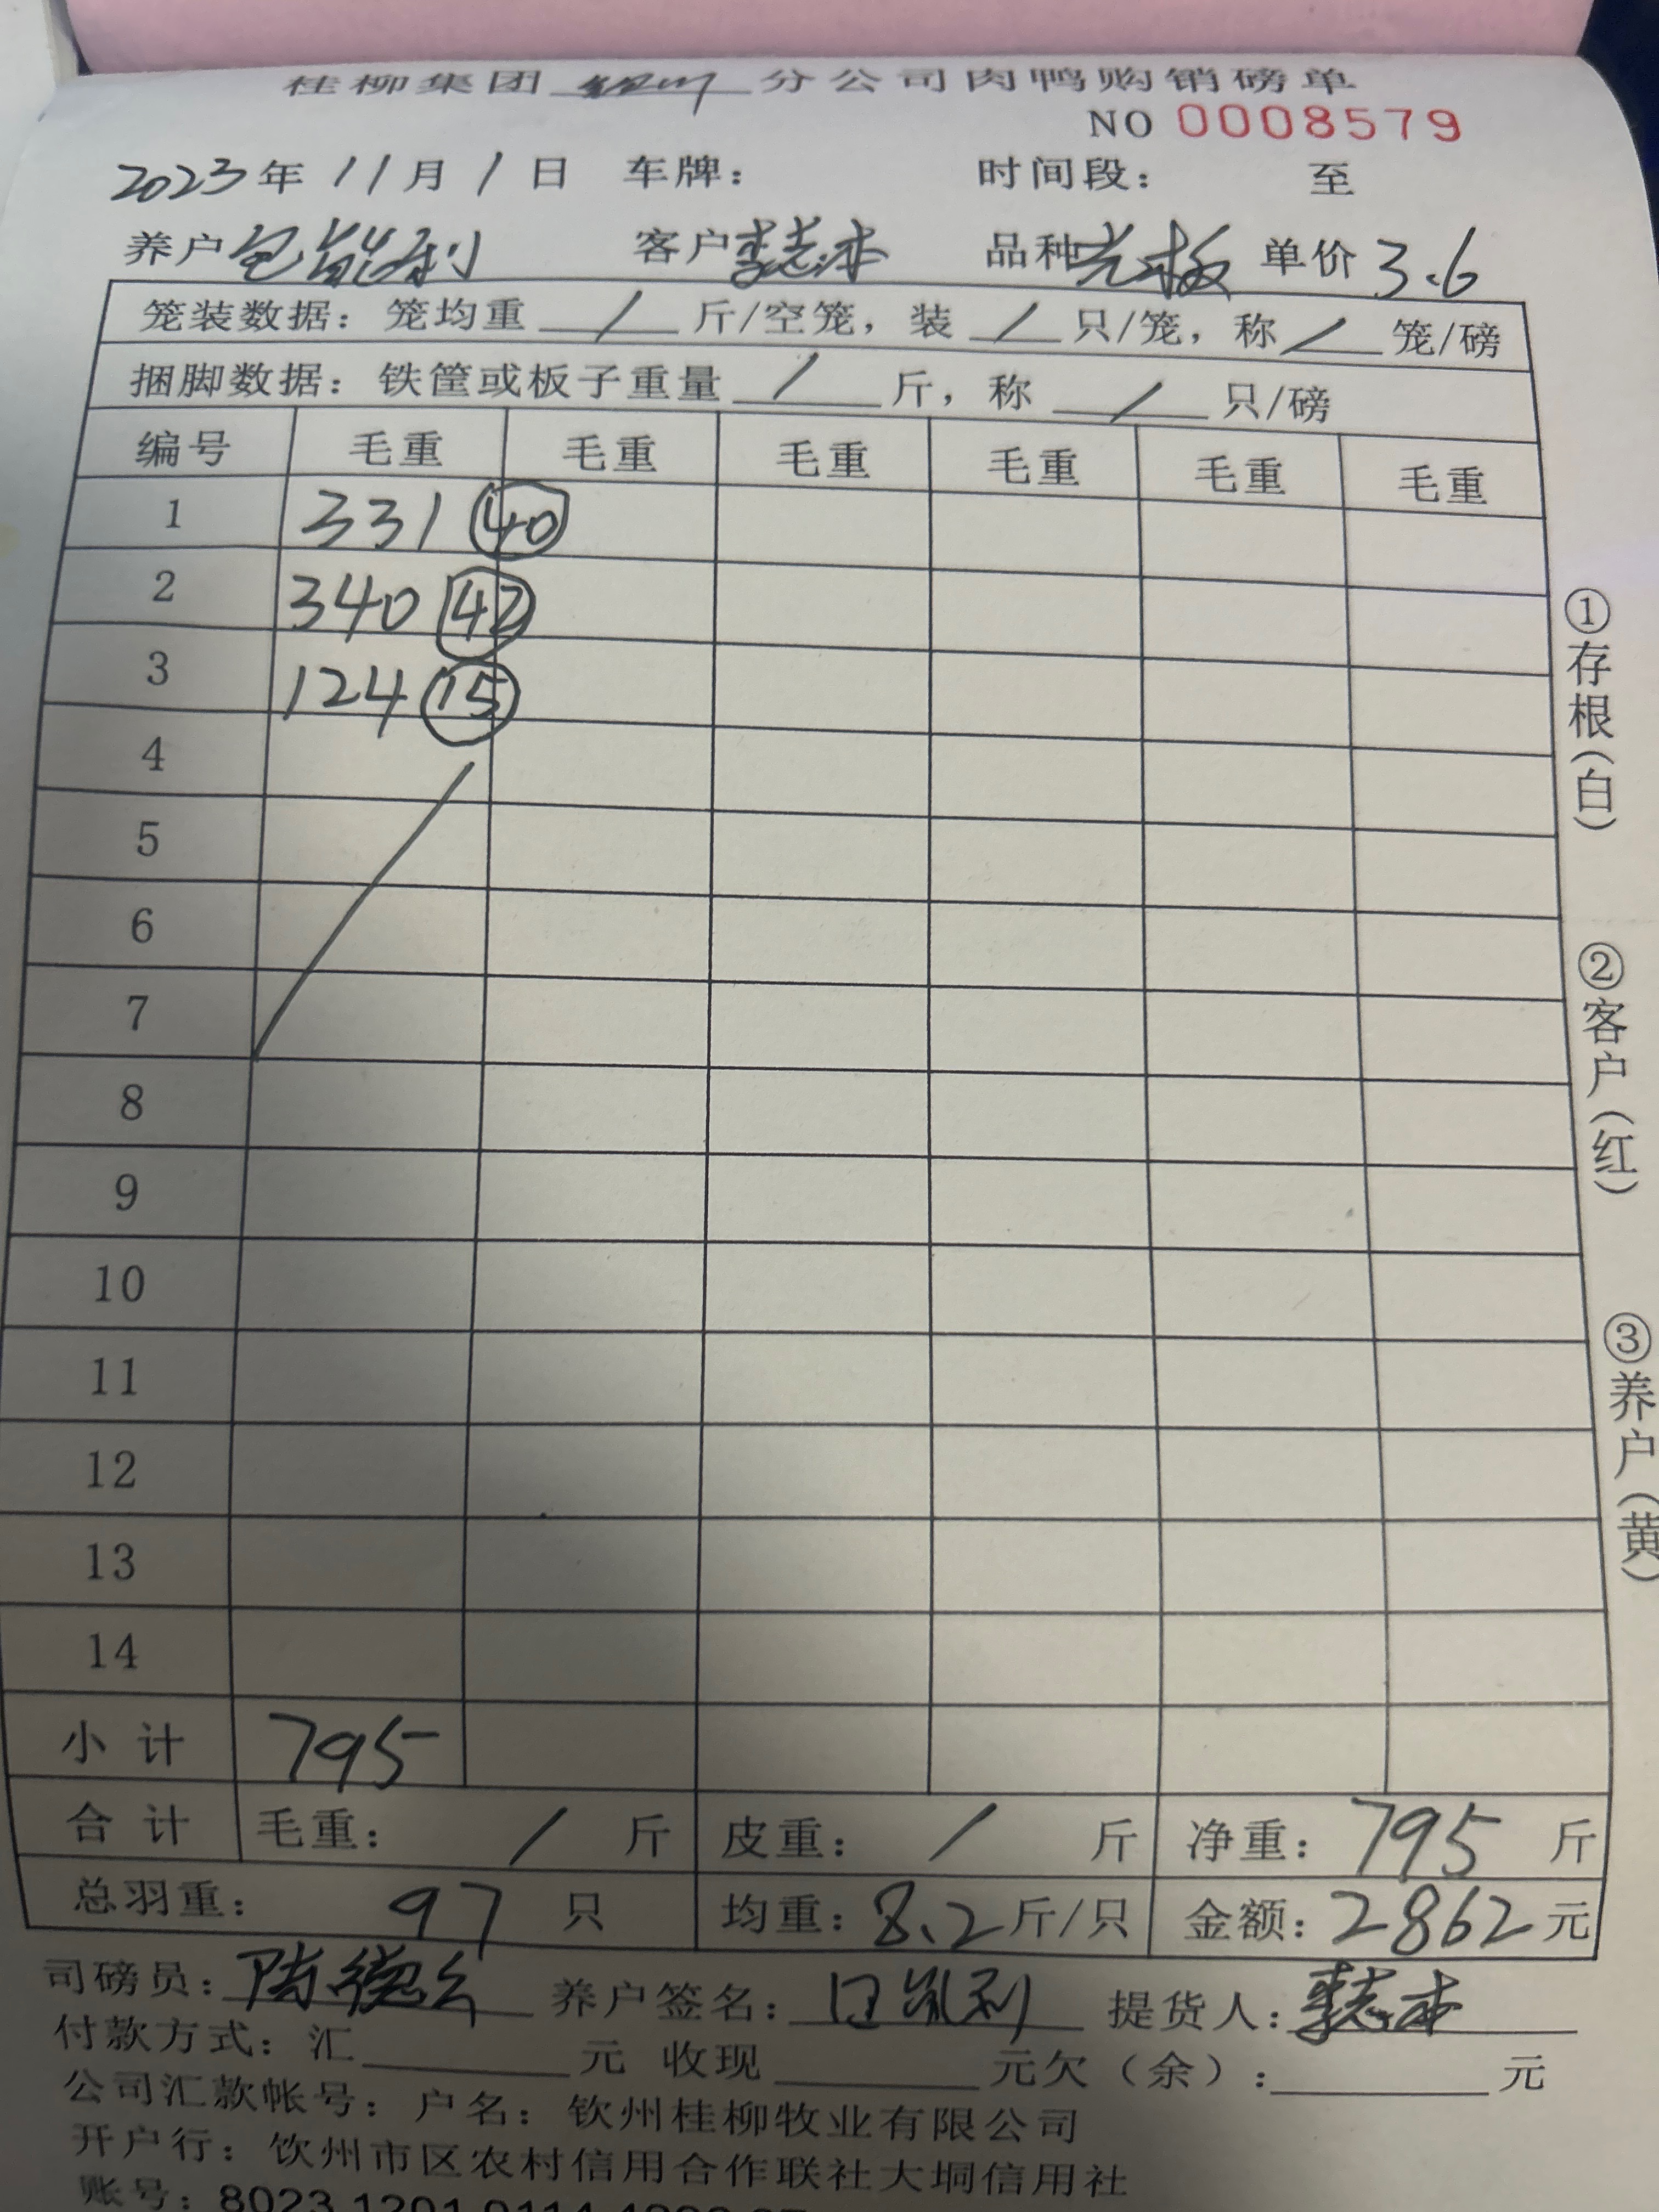 桂柳集团 钦州 分公司肉鸭购销磅单
NO 0008579
2023年 11月 1日 车牌： 时间段： 至
养户 包能利 客户 李志本 品种 光板 单价 3.6
笼装数据：笼均重 / 斤/空笼，装 / 只/笼，称 / 笼/磅
捆脚数据：铁筐或板子重量 / 斤，称 / 只/磅
编号 毛重 毛重 毛重 毛重 毛重 毛重
1 331 40
2 340 42
3 124 15
4
5
6
7
8
9
10
11
12
13
14
小计 795
合计 毛重： / 斤 皮重： / 斤 净重：795 斤
总羽重： 97 只 均重：8.2斤/只 金额：2862元
司磅员： 养户签名： 提货人：李志本
付款方式：汇 元 收现 元欠（余）： 元
公司汇款帐号：户名：钦州桂柳牧业有限公司
开户行：钦州市区农村信用合作联社大垌信用社
账号：8023 1201 0114
①存根（白）
②客户（红）
③养户（黄）